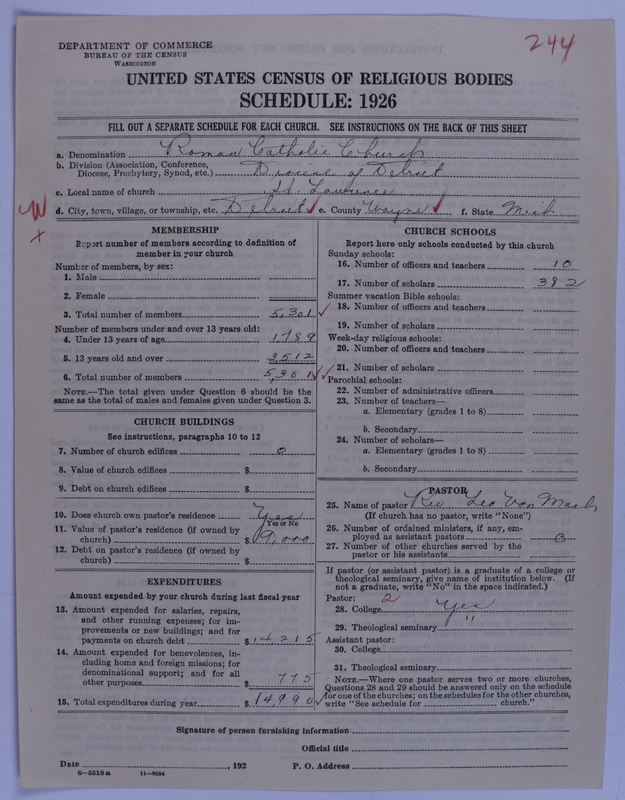 244
DEPARTMENT OF COMMERCE
BUREAU OF THE CENSUS
WASHINGTON
UNITED STATES CENSUS OF RELIGIOUS BODIES
SCHEDULE: 1926
FILL OUT A SEPARATE SCHEDULE FOR EACH CHURCH. SEE INSTRUCTIONS ON THE BACK OF THIS SHEET
a. Denomination Roman Catholic Church
b. Division (Association, Conference,
Diocese, Presbytery, Synod, etc.) Diocese of Detroit
c. Local name of church St. Lawrence
W d. City, town, village, or township, etc. Detroit ✓ e. County Wayne ✓ f. State Mich
x
MEMBERSHIP
Report number of members according to definition of
member in your church
Number of members, by sex:
1. Male
2. Female
3. Total number of members 5,301 ✓
Number of members under and over 13 years old:
4. Under 13 years of age 1789
5. 13 years old and over 3,512
6. Total number of members 5,301 ✓✓
NOTE.—The total given under Question 6 should be the
same as the total of males and females given under Question 3.
CHURCH BUILDINGS
See instructions, paragraphs 10 to 12
7. Number of church edifices 0
8. Value of church edifices $
9. Debt on church edifices $
10. Does church own pastor's residence Yes
Yes or No
11. Value of pastor's residence (if owned by
church) $ 9,000
12. Debt on pastor's residence (if owned by
church) $
EXPENDITURES
Amount expended by your church during last fiscal year
13. Amount expended for salaries, repairs,
and other running expenses; for im-
provements or new buildings; and for
payments on church debt $ 14,215
14. Amount expended for benevolences, in-
cluding home and foreign missions; for
denominational support; and for all
other purposes $ 775
15. Total expenditures during year $ 14,990 ✓
CHURCH SCHOOLS
Report here only schools conducted by this church
Sunday schools:
16. Number of officers and teachers 10
17. Number of scholars 382
Summer vacation Bible schools:
18. Number of officers and teachers
19. Number of scholars
Week-day religious schools:
20. Number of officers and teachers
21. Number of scholars
Parochial schools:
22. Number of administrative officers
23. Number of teachers—
a. Elementary (grades 1 to 8)
b. Secondary
24. Number of scholars—
a. Elementary (grades 1 to 8)
b. Secondary
PASTOR
25. Name of pastor Rev Leo Von Mach
(If church has no pastor, write "None")
26. Number of ordained ministers, if any, em-
ployed as assistant pastors 0
27. Number of other churches served by the
pastor or his assistants
If pastor (or assistant pastor) is a graduate of a college or
theological seminary, give name of institution below. (If
not a graduate, write "No" in the space indicated.)
Pastor: 2
28. College Yes
29. Theological seminary "
Assistant pastor:
30. College
31. Theological seminary
NOTE.—Where one pastor serves two or more churches,
Questions 28 and 29 should be answered only on the schedule
for one of the churches; on the schedules for the other churches,
write "See schedule for church."
Signature of person furnishing information
Official title
Date , 192 P. O. Address
8-5518a 11-9054